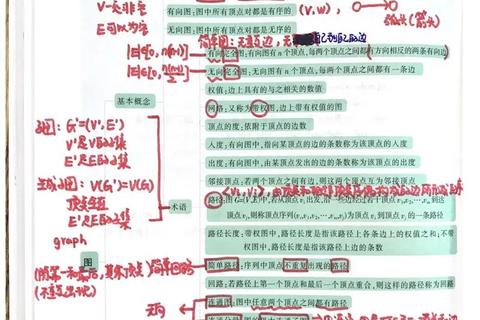 V一定非空
E可以为空
有向图:图中所有顶点对都是有序的
(V,W),
弧头(箭头)
有向图:图中所有顶点对都是无序的
简单图:无重复边,无自己到自己的边
|E|∈[0,n(n-1)]
有向完全图:有向图有 n 个顶点,每两个顶点之间都有方向相反的两条有向边
|E|∈[0,n(n-1)/2]
无向完全图:无向图有 n 个顶点,每两个顶点之间都有一条边
权值:边上具有的与之相关的数值
基本概念
网络:又称为带权图,边上带有权值的图
子图:G'=(V',E')
V'是V的子集
E'是E的子集
顶点的度:依附于顶点的边数
入度:有向图中,指向某顶点的边的条数称为该顶点的入度
出度:有向图中,由某顶点发出的边的条数称为该顶点的出度
邻接顶点:若两个顶点之间有边,则这两个顶点互为邻接顶点
生成子图:V(G')=V(G)
顶点全在
E'是E的子集
术语
路径:图G=(V,E)中,若从顶点vᵢ出发,沿一些边经过若干顶点
到达
顶点vⱼ,则称顶点序列
为顶点vᵢ到顶点vⱼ的一条路径
graph
路径长度:带权图中,路径长度是指该路径上各条边上的权值之和;不带
权图中,路径长度是指该路径上边的条数
图
简单回路
(不重复出现)
简单路径:序列中顶点不重复出现的路径
回路:若路径上第一个顶点和最后一个顶点重合,则这样的路径称为回路
无向
连通图:图中任意两个顶点之间都有路径